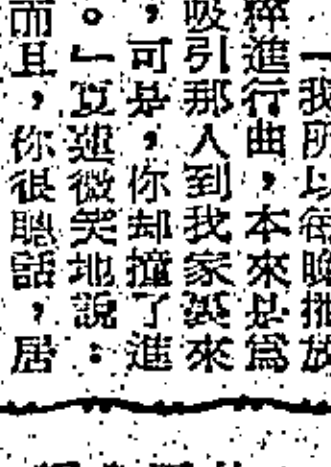 「我所以每晚播放
粹進行曲，本來是爲
吸引那人到我家裏來
，可是，你却撞了進
。」寛連微笑地說：
而且，你很聽話，居